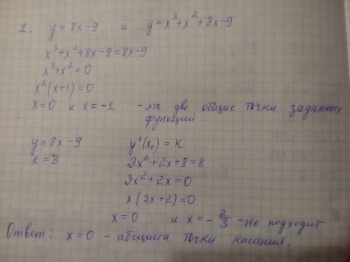 1. y = 8x-9 и y=x³+x²+8x-9
x³+x²+8x-9=8x-9
x³+x²=0
x²(x+1)=0
x=0 и x=-1 - это две общие точки заданных
функций
y=8x-9 y'(x₀) = k
x=8 3x²+2x+8=8
3x²+2x=0
x(3x+2)=0
x=0 и x=-2/3 - не подходит
Ответ: x=0 - абсцисса точки касания.